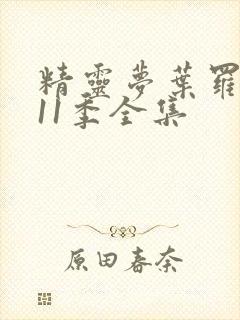 精靈夢葉羅
11季全集
原田春奈